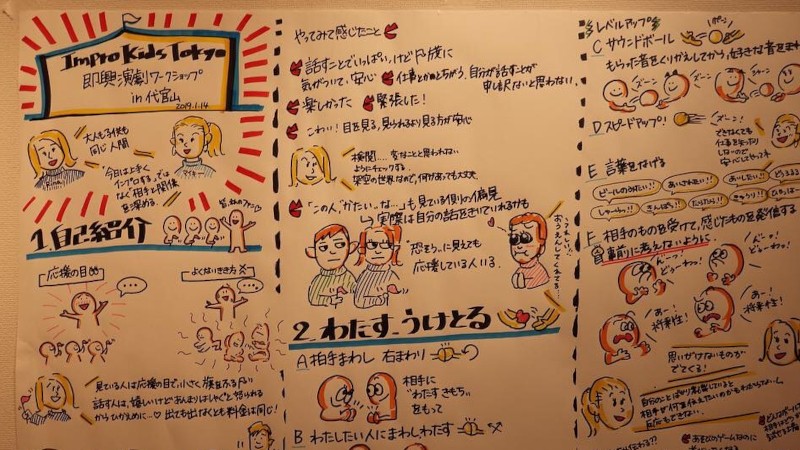 Impro Kids Tokyo
即興演劇ワークショップ
in 代官山
2019.1.14
大人も子供も
同じ人間
今日は上手く
インプロする、では
なく相手と関係
を深める。
1.自己紹介
応援の目
よくないきき方
見ている人は応援の目で、小さく旗をふる
話す人は、嬉しいけどあんまりはしゃぐと怒られる
からひかえめに…出ても出なくとも料金は同じ!
やってみて感じたこと
話すことでいっぱい、けど
気がついて安心
仕事とかとちがう、自分が話すことが
申し訳ないと思わない。
楽しかった
緊張した!
こわい!目を見る、見られるより見る方が安心
検閲…変なことと思われない
ようにチェックする
架空の世界なので、何があっても大丈夫
「この人、かたい、な…」も見ている側の偏見
実際は自分の話をきいていれるかも
恐そうに見えても
応援している人いる。
おうえんしてくれてる…
2.わたす_うけとる
A 相手まわし 右まわり
相手に
"わたす きもち"
をもって
B わたしたい人にまわしわたす
レベルアップ
C サウンドボール
もらった音をくりかえしてから、好きな音をまわ
D スピードアップ!
できなくても
E 言葉をなげる
ビールのみたい!!
あいされたい!!
F 相手のものを受けて、感じたものを発信する
事前に考えないように
んーっ?
どぅーわっ!
あー!
将来性!
思いがけないものが
でてくる!
反応もできない。